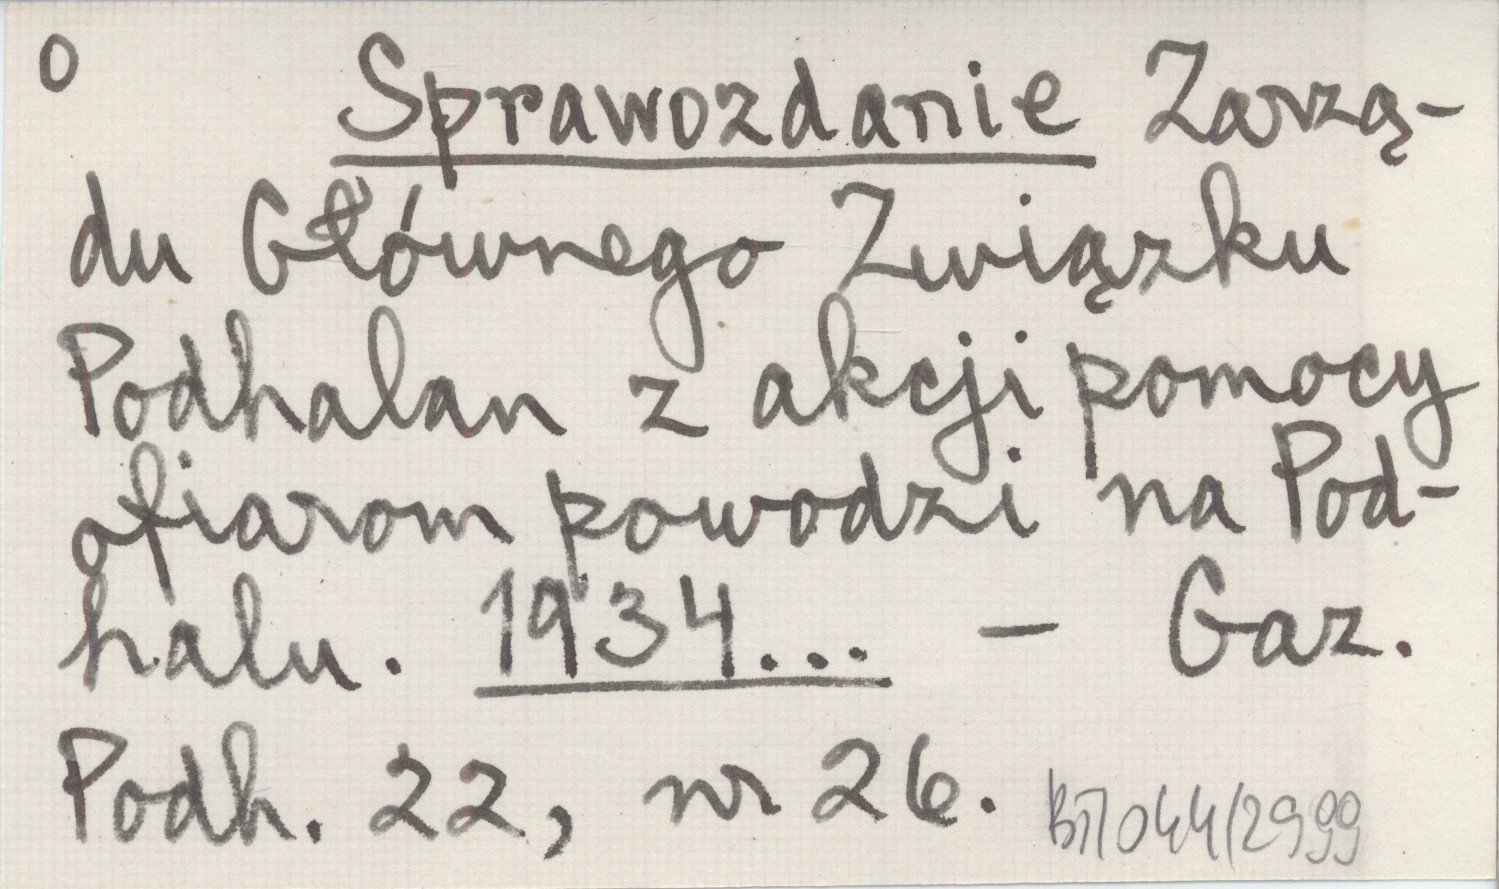 0 Sprawozdanie Zarzą-
du Głównego Związku
Podhalan z akcji pomocy
ofiarom powodzi na Pod-
halu. 1934... — Gaz.
Podh. 22, nr 26.